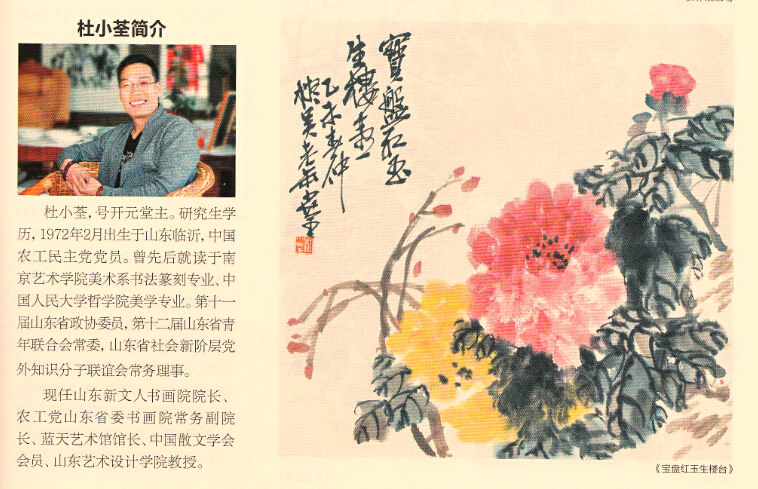 杜小荃简介
杜小荃,号开元堂主。研究生学
历,1972年2月出生于山东临沂,中国
农工民主党党员。曾先后就读于南
京艺术学院美术系书法篆刻专业、中
国人民大学哲学院美学专业。第十一
届山东省政协委员,第十二届山东省青
年联合会常委,山东省社会新阶层党
外知识分子联谊会常务理事。
现任山东新文人书画院院长、
农工党山东省委书画院常务副院
长、蓝天艺术馆馆长、中国散文学会
会员、山东艺术设计学院教授。
寶盤紅玉
生樓臺
乙未春仲
《宝盘红玉生楼台》